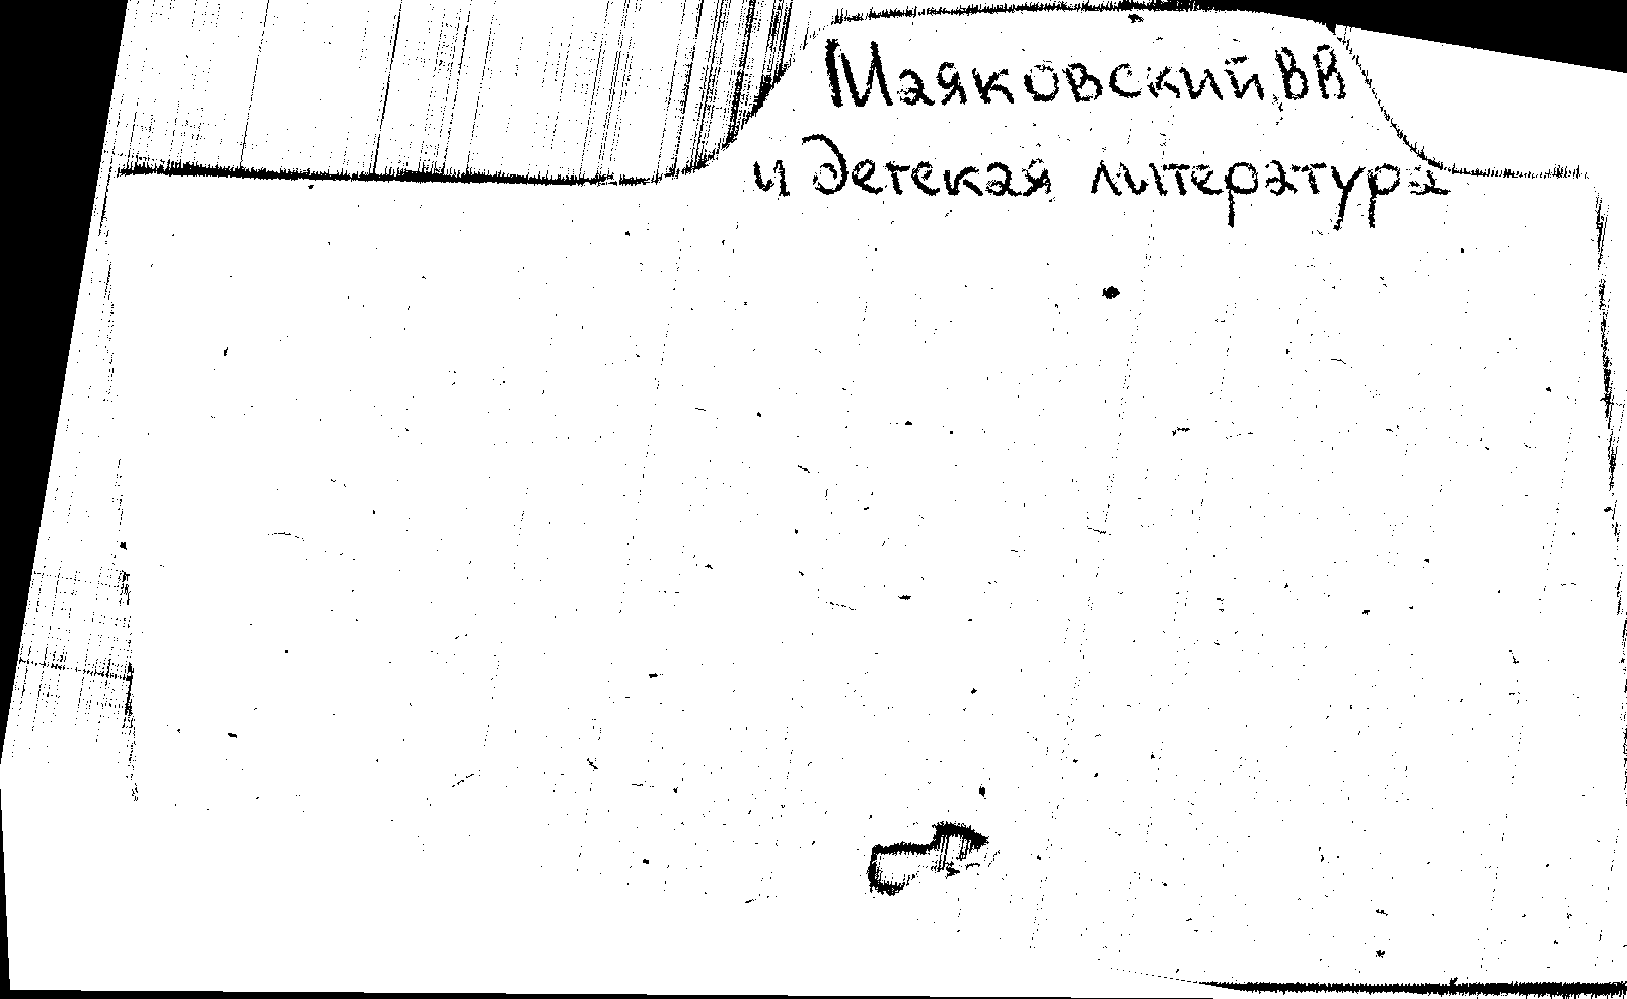 Маяковский, ВВ
и детская литература